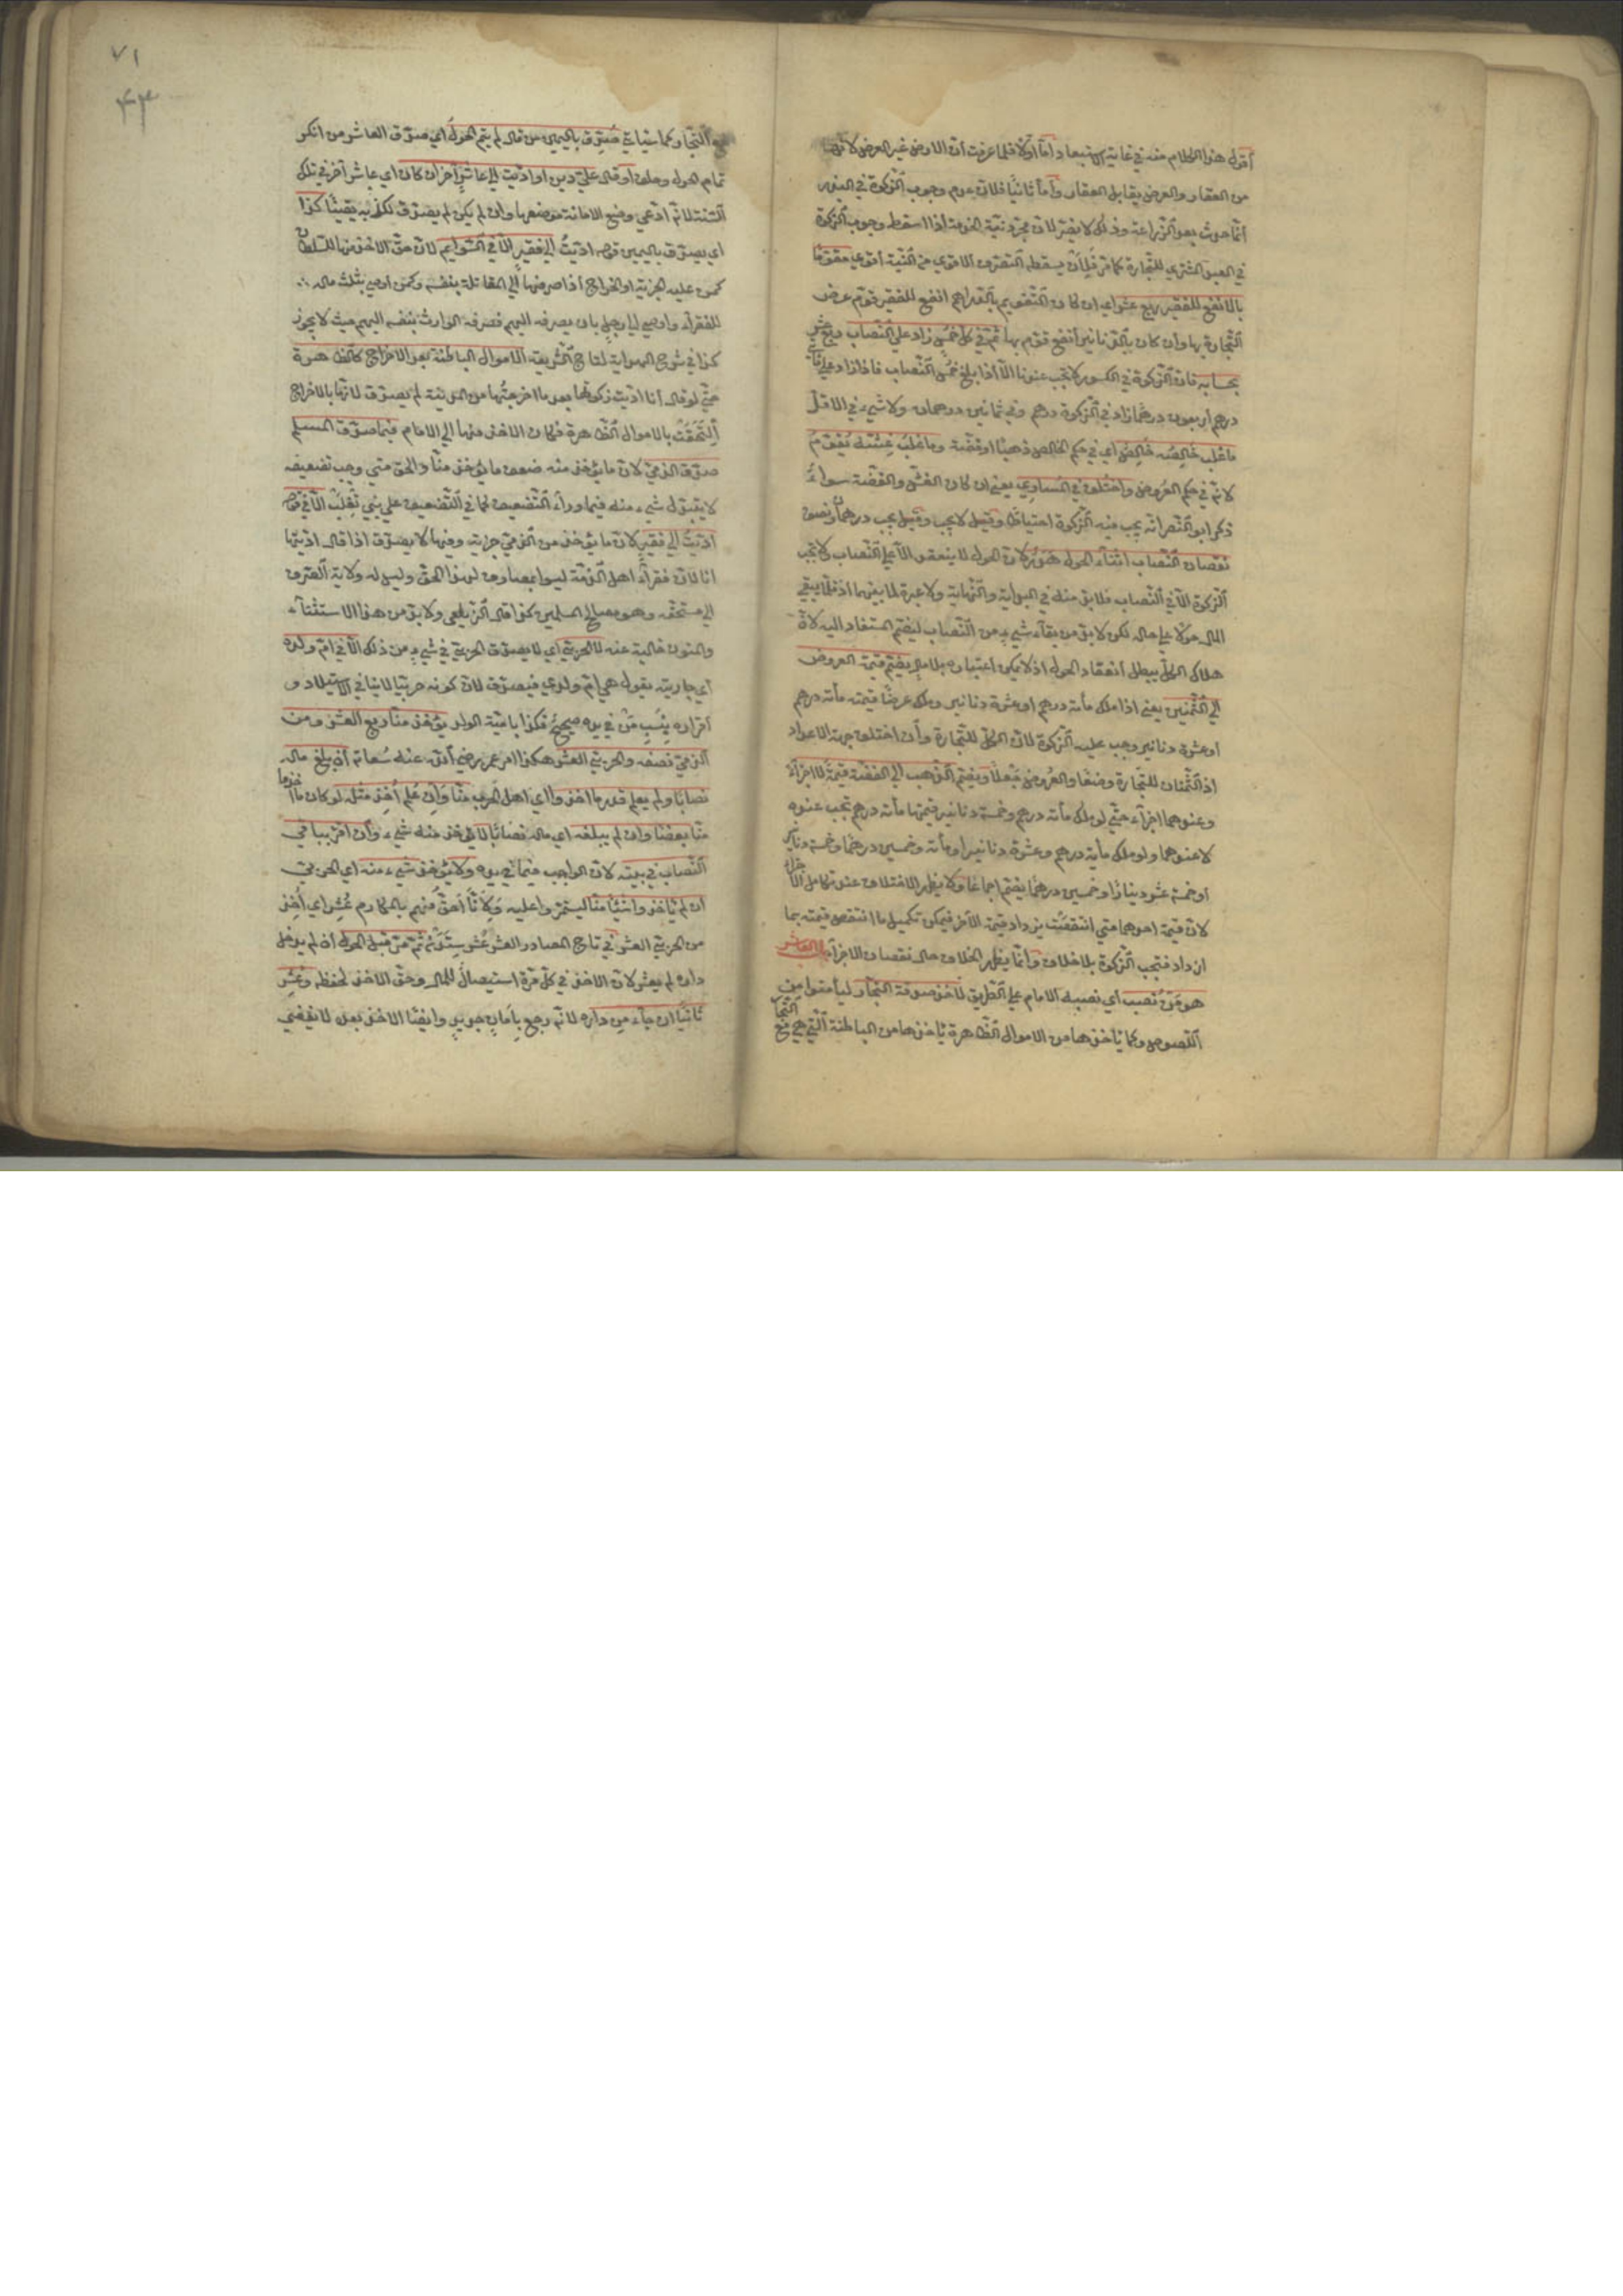 أقول هذا الكلام منه في غاية الاستبعاد أما أولا فلما عرفت أن الارض غير العرض لأنها
من العقار والعرض يقابل العقار وأما ثانيا فلان عدم وجوب الزكوة في البذر
انما حدث بعد الزراعة وذلك لا يضر لان مجرد نية الخدمة اذا اسقط وجوب الزكوة
في العبد المشتري للتجارة كما مر فلأن يسقط التصرف الاقوي من النية أقوي مقوما
بالانفع للفقير ربع عشر اي ان كان التقويم بالدراهم انفع للفقير قوم عرض
التجارة بها وان كان بالدنانير أنفع قوم بها ثم في كل خمس زاد علي النصاب ربع عشر
بحسابه فان الزكوة في الكسور لا تجب عندنا الا اذا بلغ خمس النصاب فاذا زاد علي مأتي
درهم أربعون درهما زاد في الزكوة درهم وفي ثمانين درهمان ولا شيء في الاقل
ما غلب خالصه خالص أي في حكم الخالص ذهبا او فضة وما غلب غشه يقوم
لانه في حكم العروض واختلف في المساوي يعني ان كان الغش والفضة سواء
ذكر ابو النصر انه يجب فيه الزكوة احتياطا وقيل لا يجب وقيل يجب درهمان ونصف
نقصان النصاب اثناء الحول هدر لان الحول لا ينعقد الا علي النصاب ولا تجب
الزكوة الا في النصاب فلا بد منه في البداية والنهاية ولا عبرة لما بينهما اذ قلما يبقي
المال حولا علي حاله لكن لا بد من بقاء شيء من النصاب ليضم المستفاد اليه لان
هلاك الكل يبطل انعقاد الحول اذ لا يمكن اعتباره بلا مال يضم قيمة العروض
الي الثمنين يعني اذا ملك مأة درهم او عشرة دنانير وملك عرضا قيمته مأة درهم
او عشرة دنانير وجب عليه الزكوة لان الكل للتجارة وأن اختلف جهة الاعداد
اذ الثمنان للتجارة وضعا والعروض جعلا ويضم الذهب الي الفضة قيمة لا اجزاء
وعندهما اجزاء حتي لو ملك مأة درهم وخمسة دنانير قيمتها مأة درهم تجب عنده
لا عندهما ولو ملك مأة درهم وعشرة دنانير او مأة وخمسين درهما وخمسة دنانير
او خمسة عشر دينارا وخمسين درهما يضم اجماعا ولا يظهر الاختلاف عند تكامل الاجزاء
لان قيمة احدهما متي انتقصت يزداد قيمة الآخر فيمكن تكميل ما انتقص قيمته بما
ازداد فتجب الزكوة بلا خلاف وانما يظهر الخلاف حال نقصان الاجزآء باب العاشر
هو من نصب أي نصبه الامام علي الطريق لاخذ صدقة التجار ليأمنوا من
اللصوص وكما يأخذها من الاموال الظاهرة يأخذها من الباطنة التي هي مع التجار
مع التجار كما سيأتي صدق باليمين من قال لم يتم الحول أي صدق العاشر من انكر
تمام الحول وحلف أو قال علي دين او اديت الي عاشر آخر ان كان اي عاشر آخر في تلك
السنة لانه ادعي وضع الامانة موضعها وان لم يكن لم يصدق لكذبه يقينا كذا
اي يصدق باليمين قوله اديت الي فقير الا في السوايم لان حق الاخذ منها للسلطان
كمن عليه الجزية او الخراج اذا صرفها الي المقاتلة بنفسه وكمن اوصي بثلث ماله
للفقراء واوصي الي رجل بان يصرفه اليهم فصرفه الوارث بنفسه اليهم حيث لا يجوز
كذا في شرح الهداية لتاج الشريعة الاموال الباطنة بعد الاخراج كالظاهرة
حتي لو قال أنا اديت زكوتها بعد ما اخرجتها من المدينة لم يصدق لانها بالاخراج
التحقت بالاموال الظاهرة فكان الاخذ منها الي الامام فيما صدق المسلم
صدق الذمي لان ما يؤخذ منه ضعف ما يؤخذ منا والحق متي وجب تضعيفه
لا يتبدل شيء منه فيما وراء التضعيف كما في التضعيف علي بني تغلب الا في قوله
اديت الي فقير لان ما يؤخذ من الذمي جزية وفيها لا يصدق اذا قال اديتها
انا لان فقراء اهل الذمة ليسوا بمصارف لهذا الحق وليس له ولاية الصرف
الي مستحقه وهو مصالح المسلمين كذا قال الزيلعي ولا بد من هذا الاستثناء
والمتون خالية عنه لا الحربي اي لا يصدق الحربي في شيء من ذلك الا في ام ولده
أي جارية يقول هي ام ولدي فيصدق لان كونه حربيا لا ينافي الاستيلاد و
اقراره بنسب من في يده صحيح فكذا بامية الولد يؤخذ منا ربع العشر ومن
الذمي نصفه والحربي العشر هكذا امر عمر رضي الله عنه سعاته أن بلغ ماله
نصابا ولم يعلم قدر ما اخذوا اي اهل الحرب منا وان علم اخذ مثله لو كان ما اخذوا
منا بعضا وان لم يبلغه اي ماله نصابا لا يؤخذ منه شيء وأن أقر بباقي
النصاب في بيته لان الواجب فيما في يده ولا يؤخذ شيء منه اي الحربي
ان لم يأخذوا شيئا منا ليستمروا عليه ولأنا أحق منهم بالمكارم عشر اي أخذ
من الحربي العشر ثم مر قبل الحول أن لم يدخل
داره لم يعشر لان الاخذ في كل مرة استيصال للمال وحق الاخذ لحفظه وعشر
ثانيا ان جآء من داره لانه رجع بأمان جديد وايضا الاخذ بعده لا يفضي